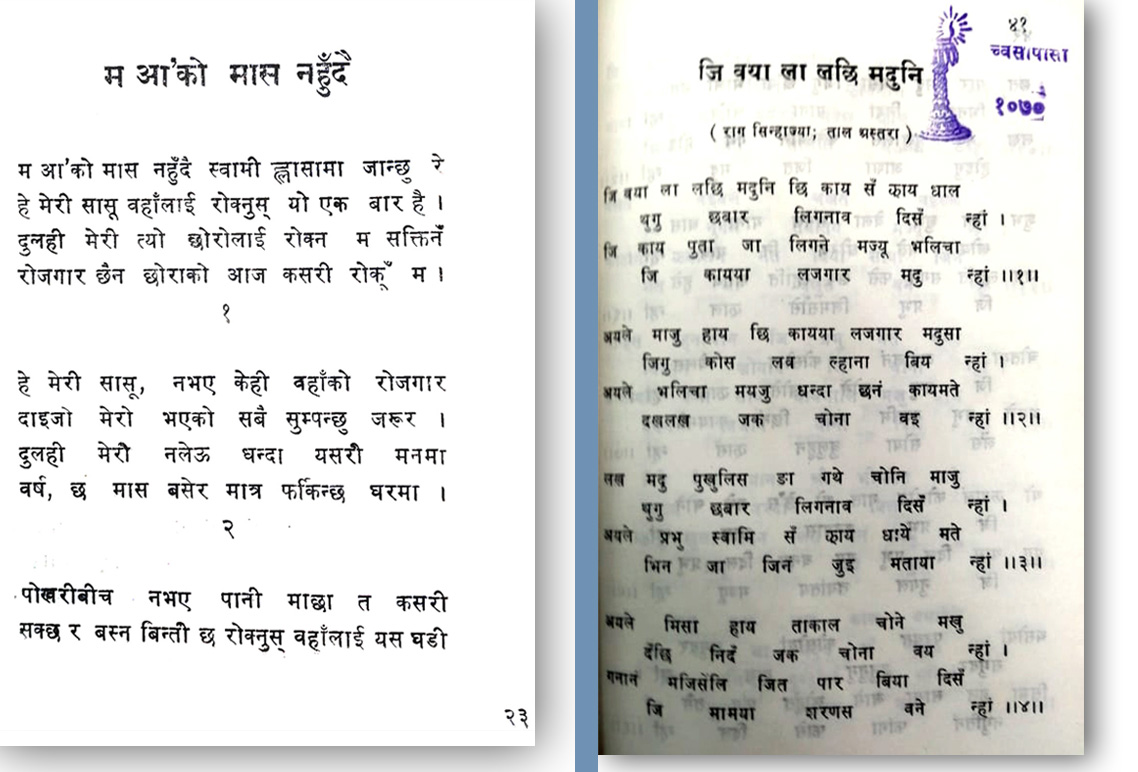 म आ'को मास नहुँदै
म आ'को मास नहुँदै स्वामी ह्लासामा जान्छु रे
हे मेरी सासू वहाँलाई रोक्नुस् यो एक बार है ।
दुलही मेरी त्यो छोरोलाई रोक्न म सक्तिनँ
रोजगार छैन छोराको आज कसरी रोकूँ म ।
१
हे मेरी सासू, नभए केही वहाँको रोजगार
दाइजो मेरो भएको सबै सुम्पन्छु जरूर ।
दुलही मेरी नलेऊ धन्दा यसरी मनमा
वर्ष, छ मास बसेर मात्र फर्किन्छ घरमा ।
२
पोखरीबीच नभए पानी माछा त कसरी
सक्छ र बस्न बिन्ती छ रोक्नुस् वहाँलाई यस घडी
२३
४१
च्वसापासा
१०७०
जि वया ला लछि मदुनि
( राग सिन्हाज्या; ताल अस्तरा )
जि वया ला लछि मदुनि छि काय सँ झाय धाल
थुगु छबार लिगनाव दिसँ न्हां ।
जि काय पुता जा लिगने मज्यू भलिचा
जि कायया लजगार मदु न्हां ॥१॥
अयले माजु हाय छि कायया लजगार मदुसा
जिगु कोस लव ल्हाना बिय न्हां ।
अयले भलिचा मयजु धन्दा छनं कायमते
दखलख जक चोना वइ न्हां ॥२॥
लख मदु पुखुलिस ङा गथे चोनि माजु
थुगु छबार लिगनाव दिसँ न्हां ।
अयले प्रभु स्वामि सँ झाय धाये मते
भिन जा जिन जुइ मताया न्हां ॥३॥
अयले मिसा हाय ताकाल चोने मखु
दँछि निदँ जक चोना वय न्हां ।
गनानं मजिसेलि जित पार बिया दिसँ
जि मामया शरणस वने न्हां ॥४॥